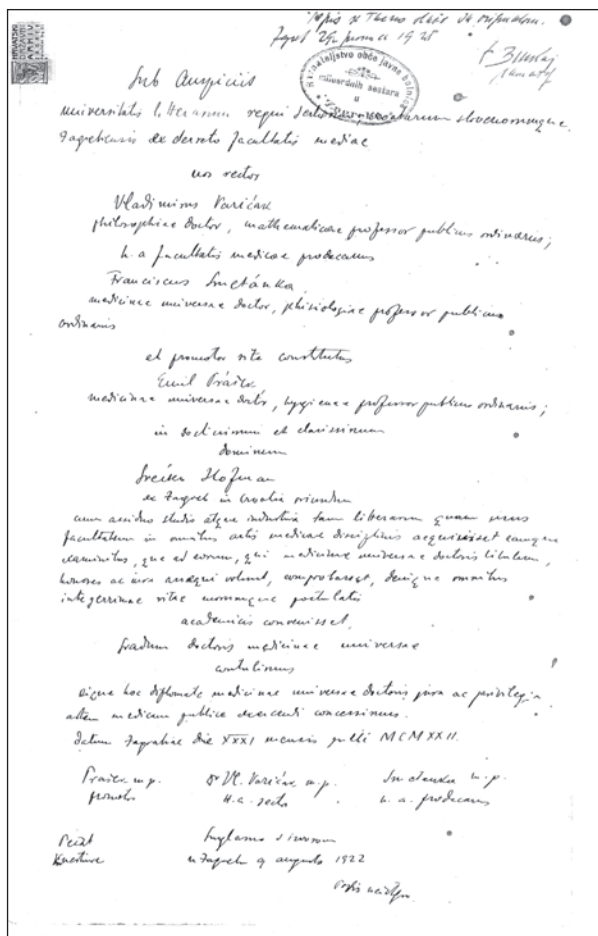 HRVATSKI
DRŽAVNI
ARHIV
Prepis se slaže sa originalom.
Zagreb 29 1928
Ravnateljstvo obće javne bolnice
milosrdnih sestara
u
Sub Auspiciis
universitatis litterarum regni Serborum, Croatarum Slovenorumque
Zagrebensis ex decreto facultatis mediae
nos rector
Vladimirus Varićak
philosophiae doctor, mathematicae professor publicus ordinarius;
h. a facultatis medicae prodecanus
Franciscus Smetánka
medicinae universae doctor, phisiologiae professor publicus
ordinarius
et promotor rite constitutus
Emil Prášek
medicinae universae doctor, hygienae professor publicus ordinarius;
in doctissimum et clarissimum
dominum
Srećko Hofman
ex Zagreb in Croatia oriundum
cum assiduo studio atque industria tam litterarum quam usus
facultatem in omnibus artis medicae disciplinis acquisivisset eamque
examinibus, quae ad eorum, qui medicinae universae doctoris titulum,
honores ac iura assequi volunt, comprobasset, denique omnibus
integerrimae vitae morumque postulatis
academicis convenisset,
gradum doctoris medicinae universae
contulimus
eique hoc diplomate medicinae universae doctoris jura ac privilegia
artem medicam publice exercendi concessimus.
Datum Zagrabiae die XXXI mensis julii MCMXXII.
Prašek m.p. Dr Vl. Varićak m.p. Smetanka m.p.
promotor h.a. rector h. a. prodecanus
Pečat
u Zagrebu 9 augusta 1922